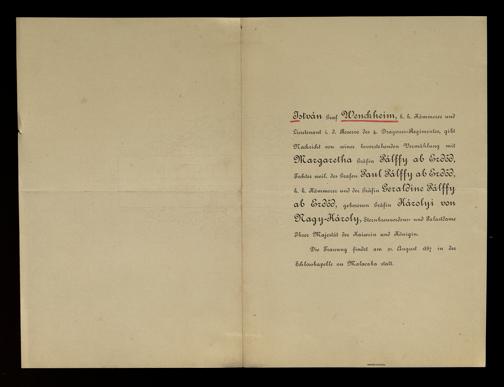 István Graf Wenckheim, k. k. Kämmerer und
Lieutenant i. d. Reserve des 4. Dragoner-Regimentes, gibt
Nachricht von seiner bevorstehenden Vermählung mit
Margaretha Gräfin Pálffy ab Erdőd,
Tochter weil. des Grafen Paul Pálffy ab Erdőd,
k. k. Kämmerer und der Gräfin Geraldine Pálffy
ab Erdőd, geborenen Gräfin Károlyi von
Nagy-Károly, Sternkreuzordens- und Palastdame
Ihrer Majestät der Kaiserin und Königin.
Die Trauung findet am August in der
Schlosskapelle zu Malaczka statt.